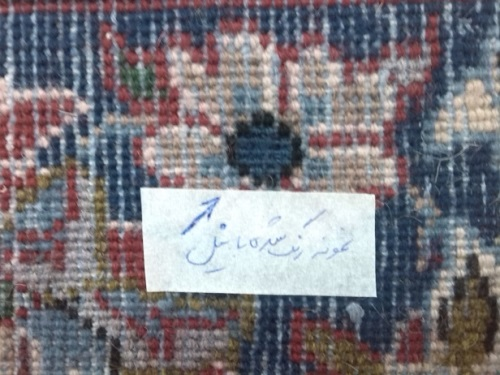 نمونه رنگ شده با نیل